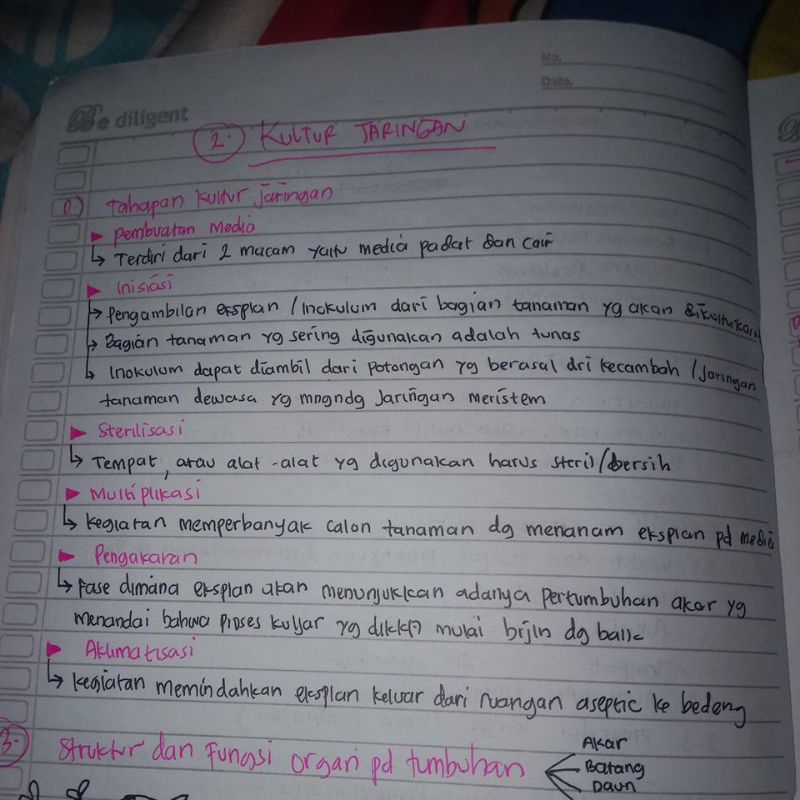 No.
Date.
Be diligent
2. KULTUR JARINGAN
Tahapan kultur jaringan
▶ pembuatan Media
↳ Terdiri dari 2 macam yaitu media padat dan cair
▶ Inisiasi
→ Pengambilan eksplan / Inokulum dari bagian tanaman yg akan dikulturkan
→ Bagian tanaman yg sering digunakan adalah tunas
↳ Inokulum dapat diambil dari potongan yg berasal dri kecambah / Jaringan
tanaman dewasa yg mngndg Jaringan meristem
▶ Sterilisasi
↳ Tempat, atau alat-alat yg digunakan harus steril/bersih
▶ Multiplikasi
↳ kegiatan memperbanyak calon tanaman dg menanam eksplan pd media
▶ Pengakaran
↳ Fase dimana eksplan akan menunjukkan adanya pertumbuhan akar yg
menandai bahwa proses kuljar yg mulai brjln dg baik
▶ Aklimatisasi
↳ kegiatan memindahkan eksplan keluar dari ruangan aseptic ke bedeng
3. Struktur dan Fungsi organ pd tumbuhan
Akar
Batang
Daun